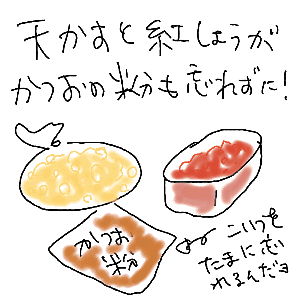 天かすと紅しょうが
かつおの粉も忘れずに!
かつお
粉
こいつを
たまに忘
れるんだヨ